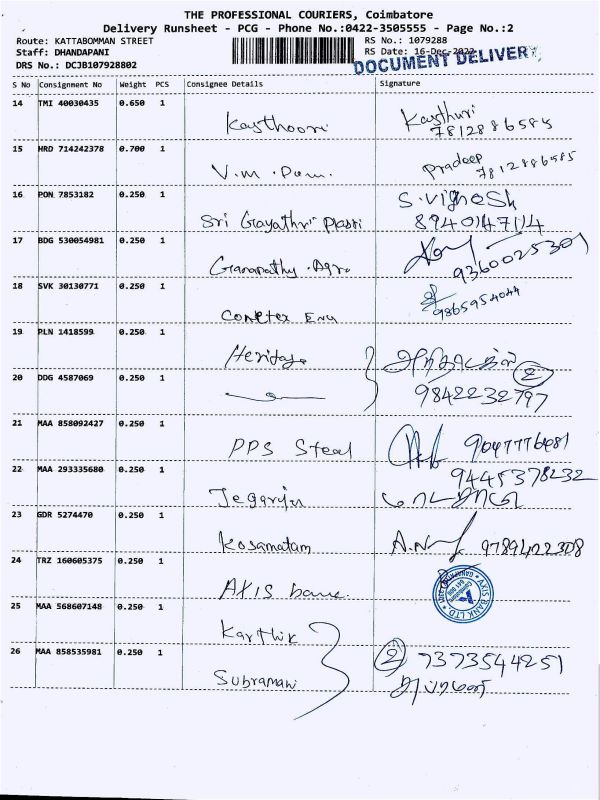 THE PROFESSIONAL COURIERS, Coimbatore
Delivery Runsheet - PCG - Phone No.:0422-3505555 - Page No.:2
Route: KATTABOMMAN STREET RS No.: 1079288
Staff: DHANDAPANI RS Date: 16-Dec-2022
DRS No.: DCJB107928802 DOCUMENT DELIVERY
S No Consignment No Weight PCS Consignee Details Signature
14 TMI 40030435 0.650 1
Kasthoori Kasthuri
7812886585
15 HRD 714242378 0.700 1
V.M. Pradeep
7812886585
16 PON 7853182 0.250 1
Sri Gayathri Plastri S.Vignesh
8940147114
17 BDG 530054981 0.250 1
Ganapathy Agro 9360025309
18 SVK 30130771 0.250 1
9865954044
19 PLN 1418599 0.250 1
Heritage
20 DDG 4587069 0.250 1
2
9842232797
21 MAA 858092427 0.250 1
PPS Steal
22 MAA 293335680 0.250 1
9445378232
23 GDR 5274470 0.250 1
Kosamatam A.N 9789422308
24 TRZ 160605375 0.250 1
AXIS bank AXIS BANK LTD
25 MAA 568607148 0.250 1
Karthik
26 MAA 858535981 0.250 1
Subramani 2 7373544251